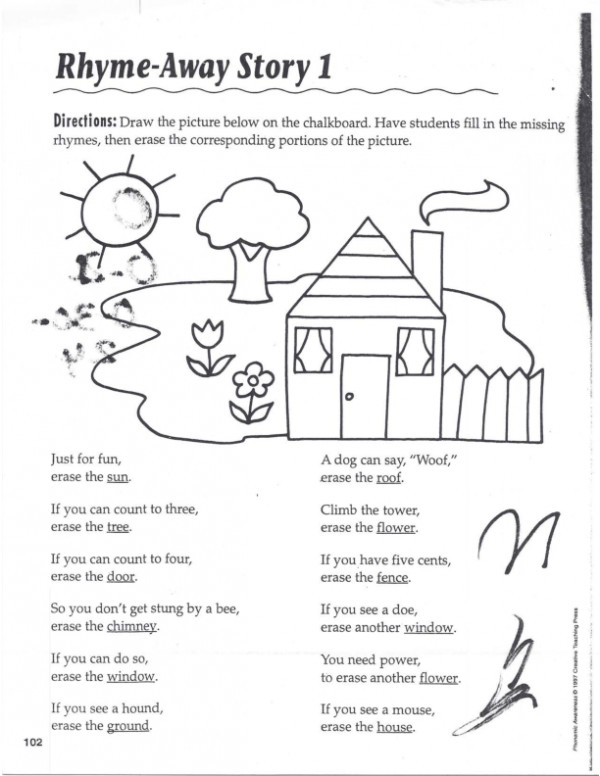 Rhyme-Away Story 1
Directions: Draw the picture below on the chalkboard. Have students fill in the missing
rhymes, then erase the corresponding portions of the picture.
Just for fun,
erase the sun.
If you can count to three,
erase the tree.
If you can count to four,
erase the door.
So you don't get stung by a bee,
erase the chimney.
If you can do so,
erase the window.
If you see a hound,
erase the ground.
A dog can say, "Woof,"
erase the roof.
Climb the tower,
erase the flower.
If you have five cents,
erase the fence.
If you see a doe,
erase another window.
You need power,
to erase another flower.
If you see a mouse,
erase the house.
102
Phonemic Awareness © 1997 Creative Teaching Press